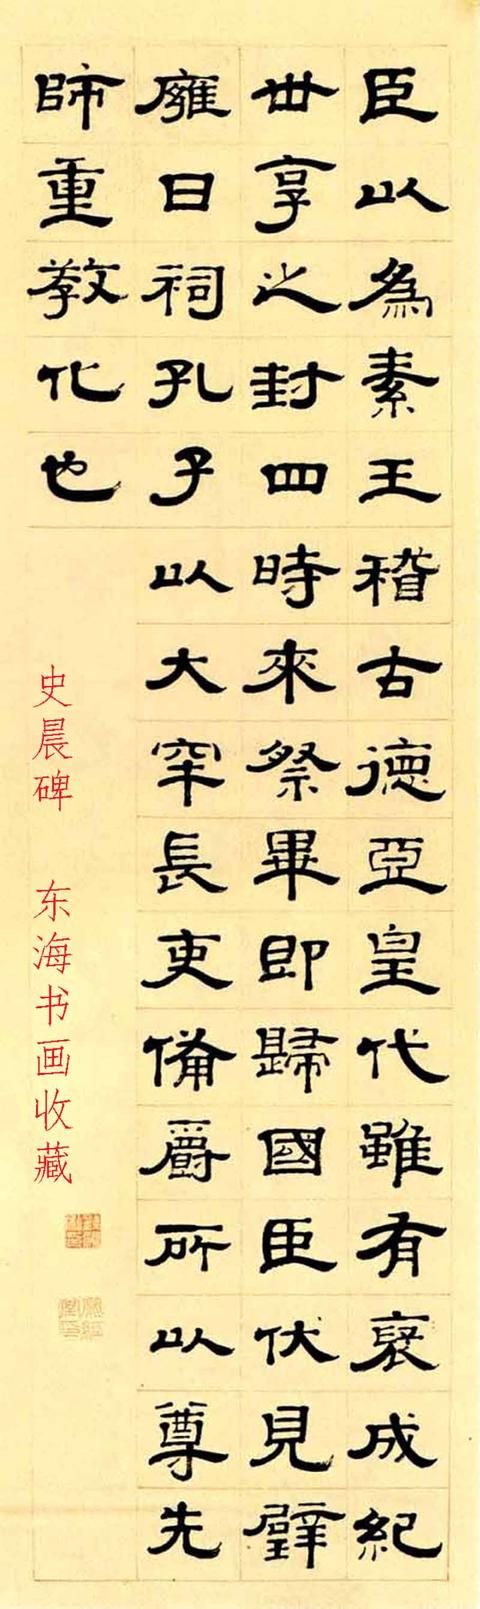 臣以為素王稽古德亞皇代雖有褒成紀
世享之封四時來祭畢即歸國臣伏見璧
廱日祠孔子以大牢長吏備爵所以尊先
師重教化也
史晨碑 东海书画收藏